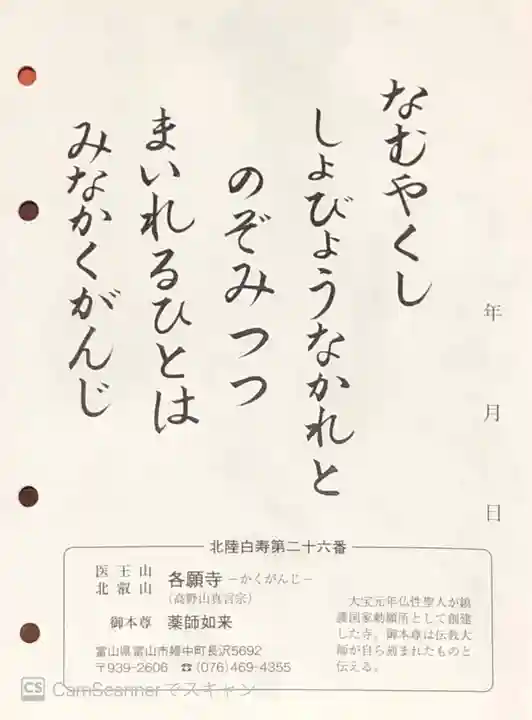 年 月 日
なむやくし
しょびょうなかれと
のぞみつつ
まいれるひとは
みなかくがんじ
北陸白寿第二十六番
医王山
北叡山
各願寺－かくがんじ－
(高野山真言宗)
御本尊 薬師如来
富山県富山市婦中町長沢5692
〒939-2606 ☎(076)469-4355
大宝元年仏性聖人が鎮
護国家勅願所として創建
した寺。御本尊は伝教大
師が自ら刻まれたものと
伝える。
CS CamScannerでスキャン